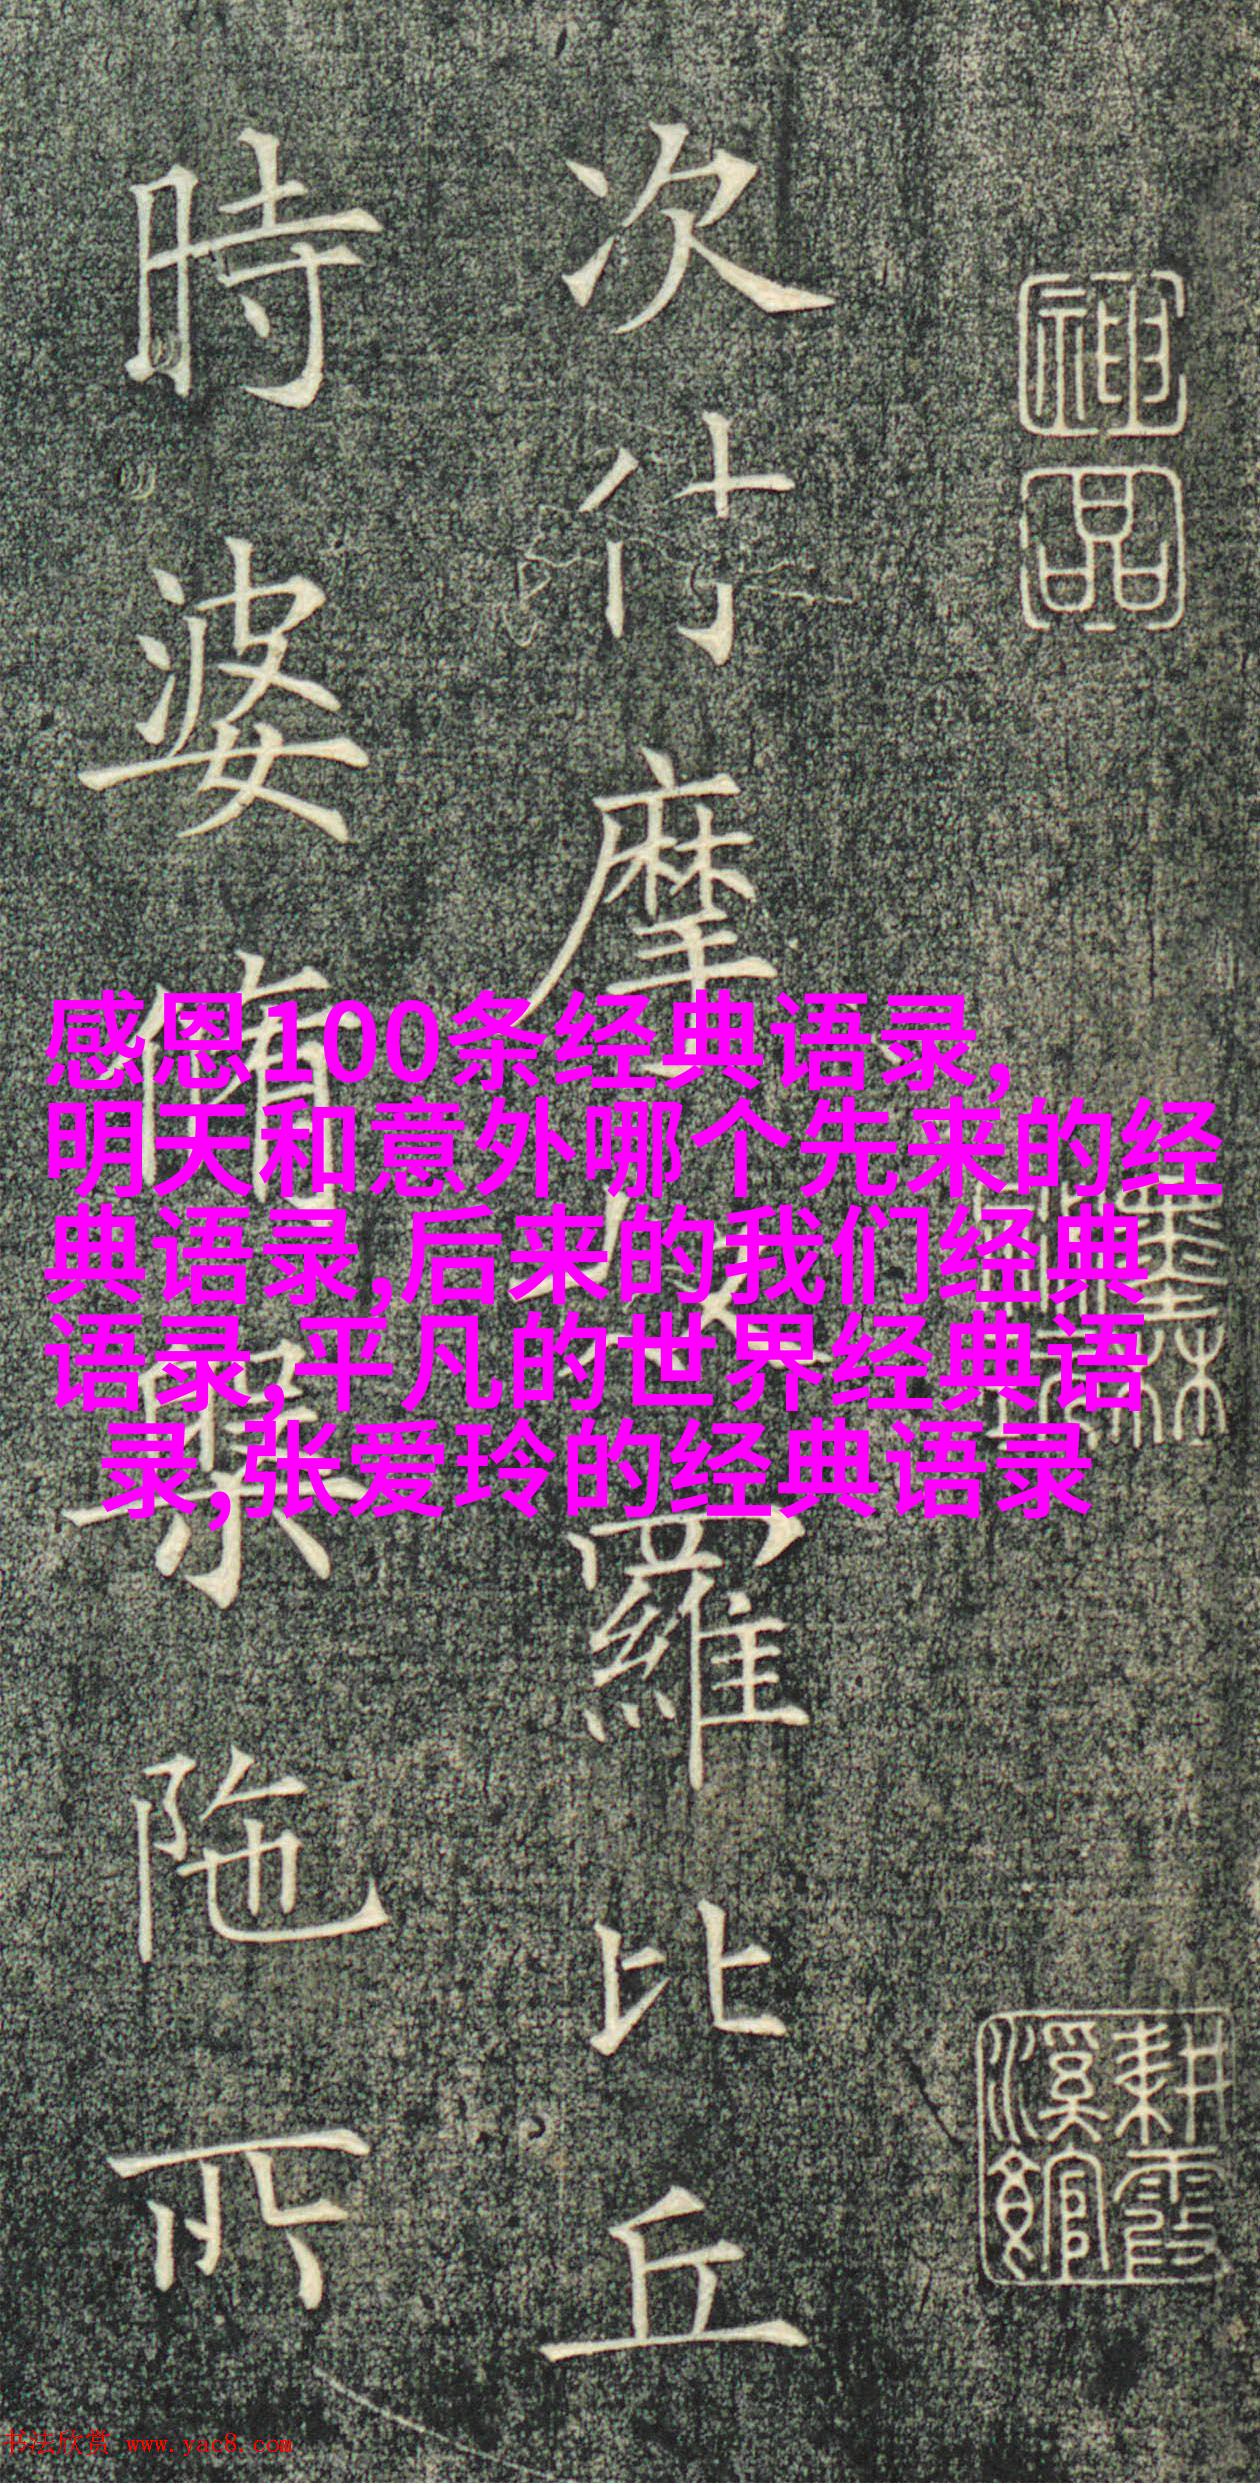 神品
耕霞溪館
次付摩羅比丘
時婆脩槃陁所
感恩100条经典语录,
明天和意外哪个先来的经
典语录,后来的我们经典
语录,平凡的世界经典语
录,张爱玲的经典语录
书法欣赏 www.yac8.com